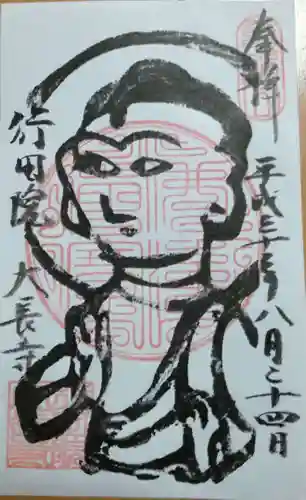 奉拝
平成三十年八月二十四日
行田院 大長寺